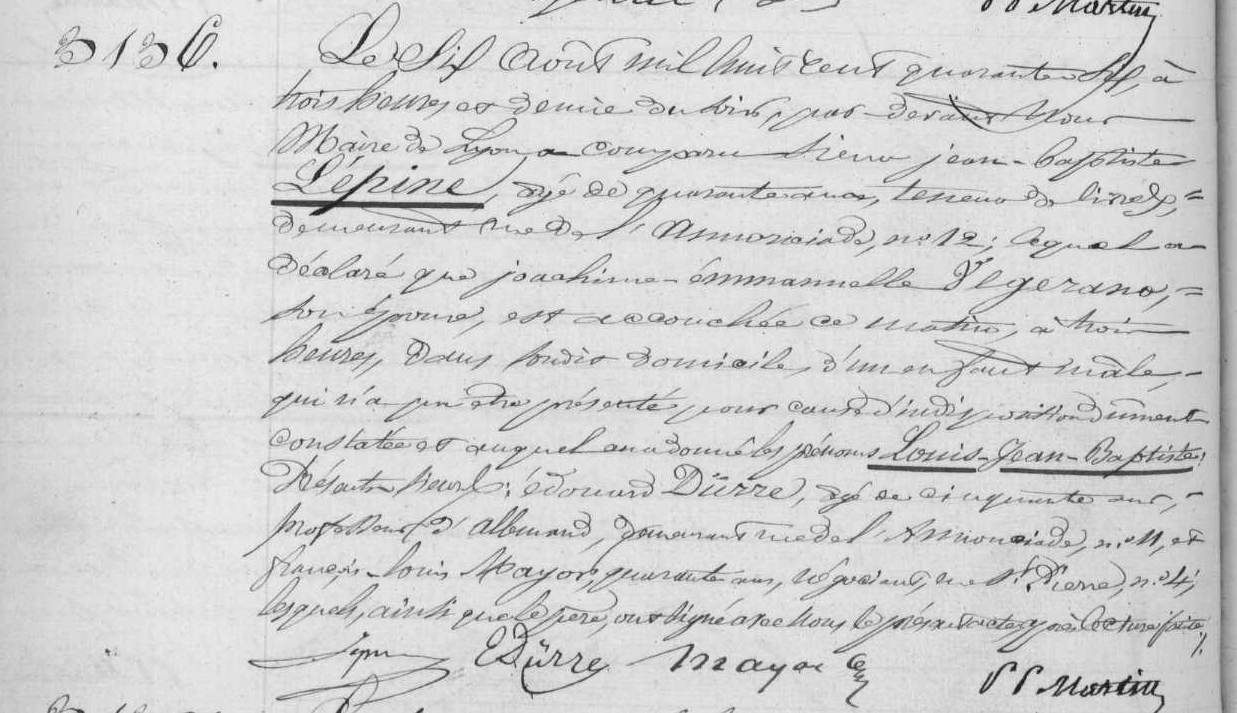 P P Martin
3136. Le Six août mil huit cent quarante six, à
trois heures et demie du soir, par-devant Nous
Maire de Lyon a comparu Sieur jean-baptiste
Lépine, âgé de quarante ans, teneur de livres,=
demeurant rue de l'Annonciade, n.o 12; lequel a
déclaré que joachime-émmanuelle Ylgerano,=
son épouse, est accouchée ce matin, à trois
heures, dans sondit domicile, d'un enfant mâle,-
qui n'a pu être présenté pour cause d'indisposition dûment
constatée et auquel on a donné les prénoms Louis-Jean-Baptiste;
Présents Sieurs: édouard Dürre, âgé de cinquante ans,-
professeur d'allemand, demeurant rue de l'Annonciade, n.o 11, et
françois-louis Mayor, quarante ans, négociant, rue St. Pierre, n.o 4;
lesquels, ainsi que le père, ont signé avec Nous le présent acte après lecture faite ./.
EDürre Mayor P P Martin